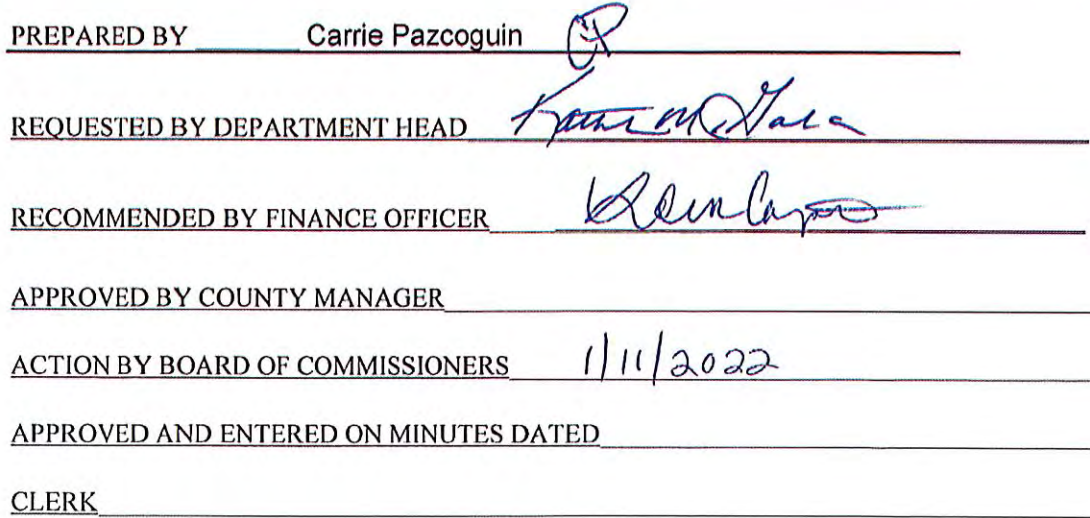 PREPARED BY Carrie Pazcoguin CP
REQUESTED BY DEPARTMENT HEAD
RECOMMENDED BY FINANCE OFFICER
APPROVED BY COUNTY MANAGER
ACTION BY BOARD OF COMMISSIONERS 1/11/2022
APPROVED AND ENTERED ON MINUTES DATED
CLERK